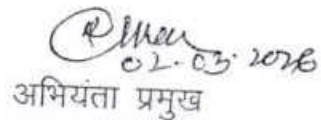 02.03.2026
अभियंता प्रमुख